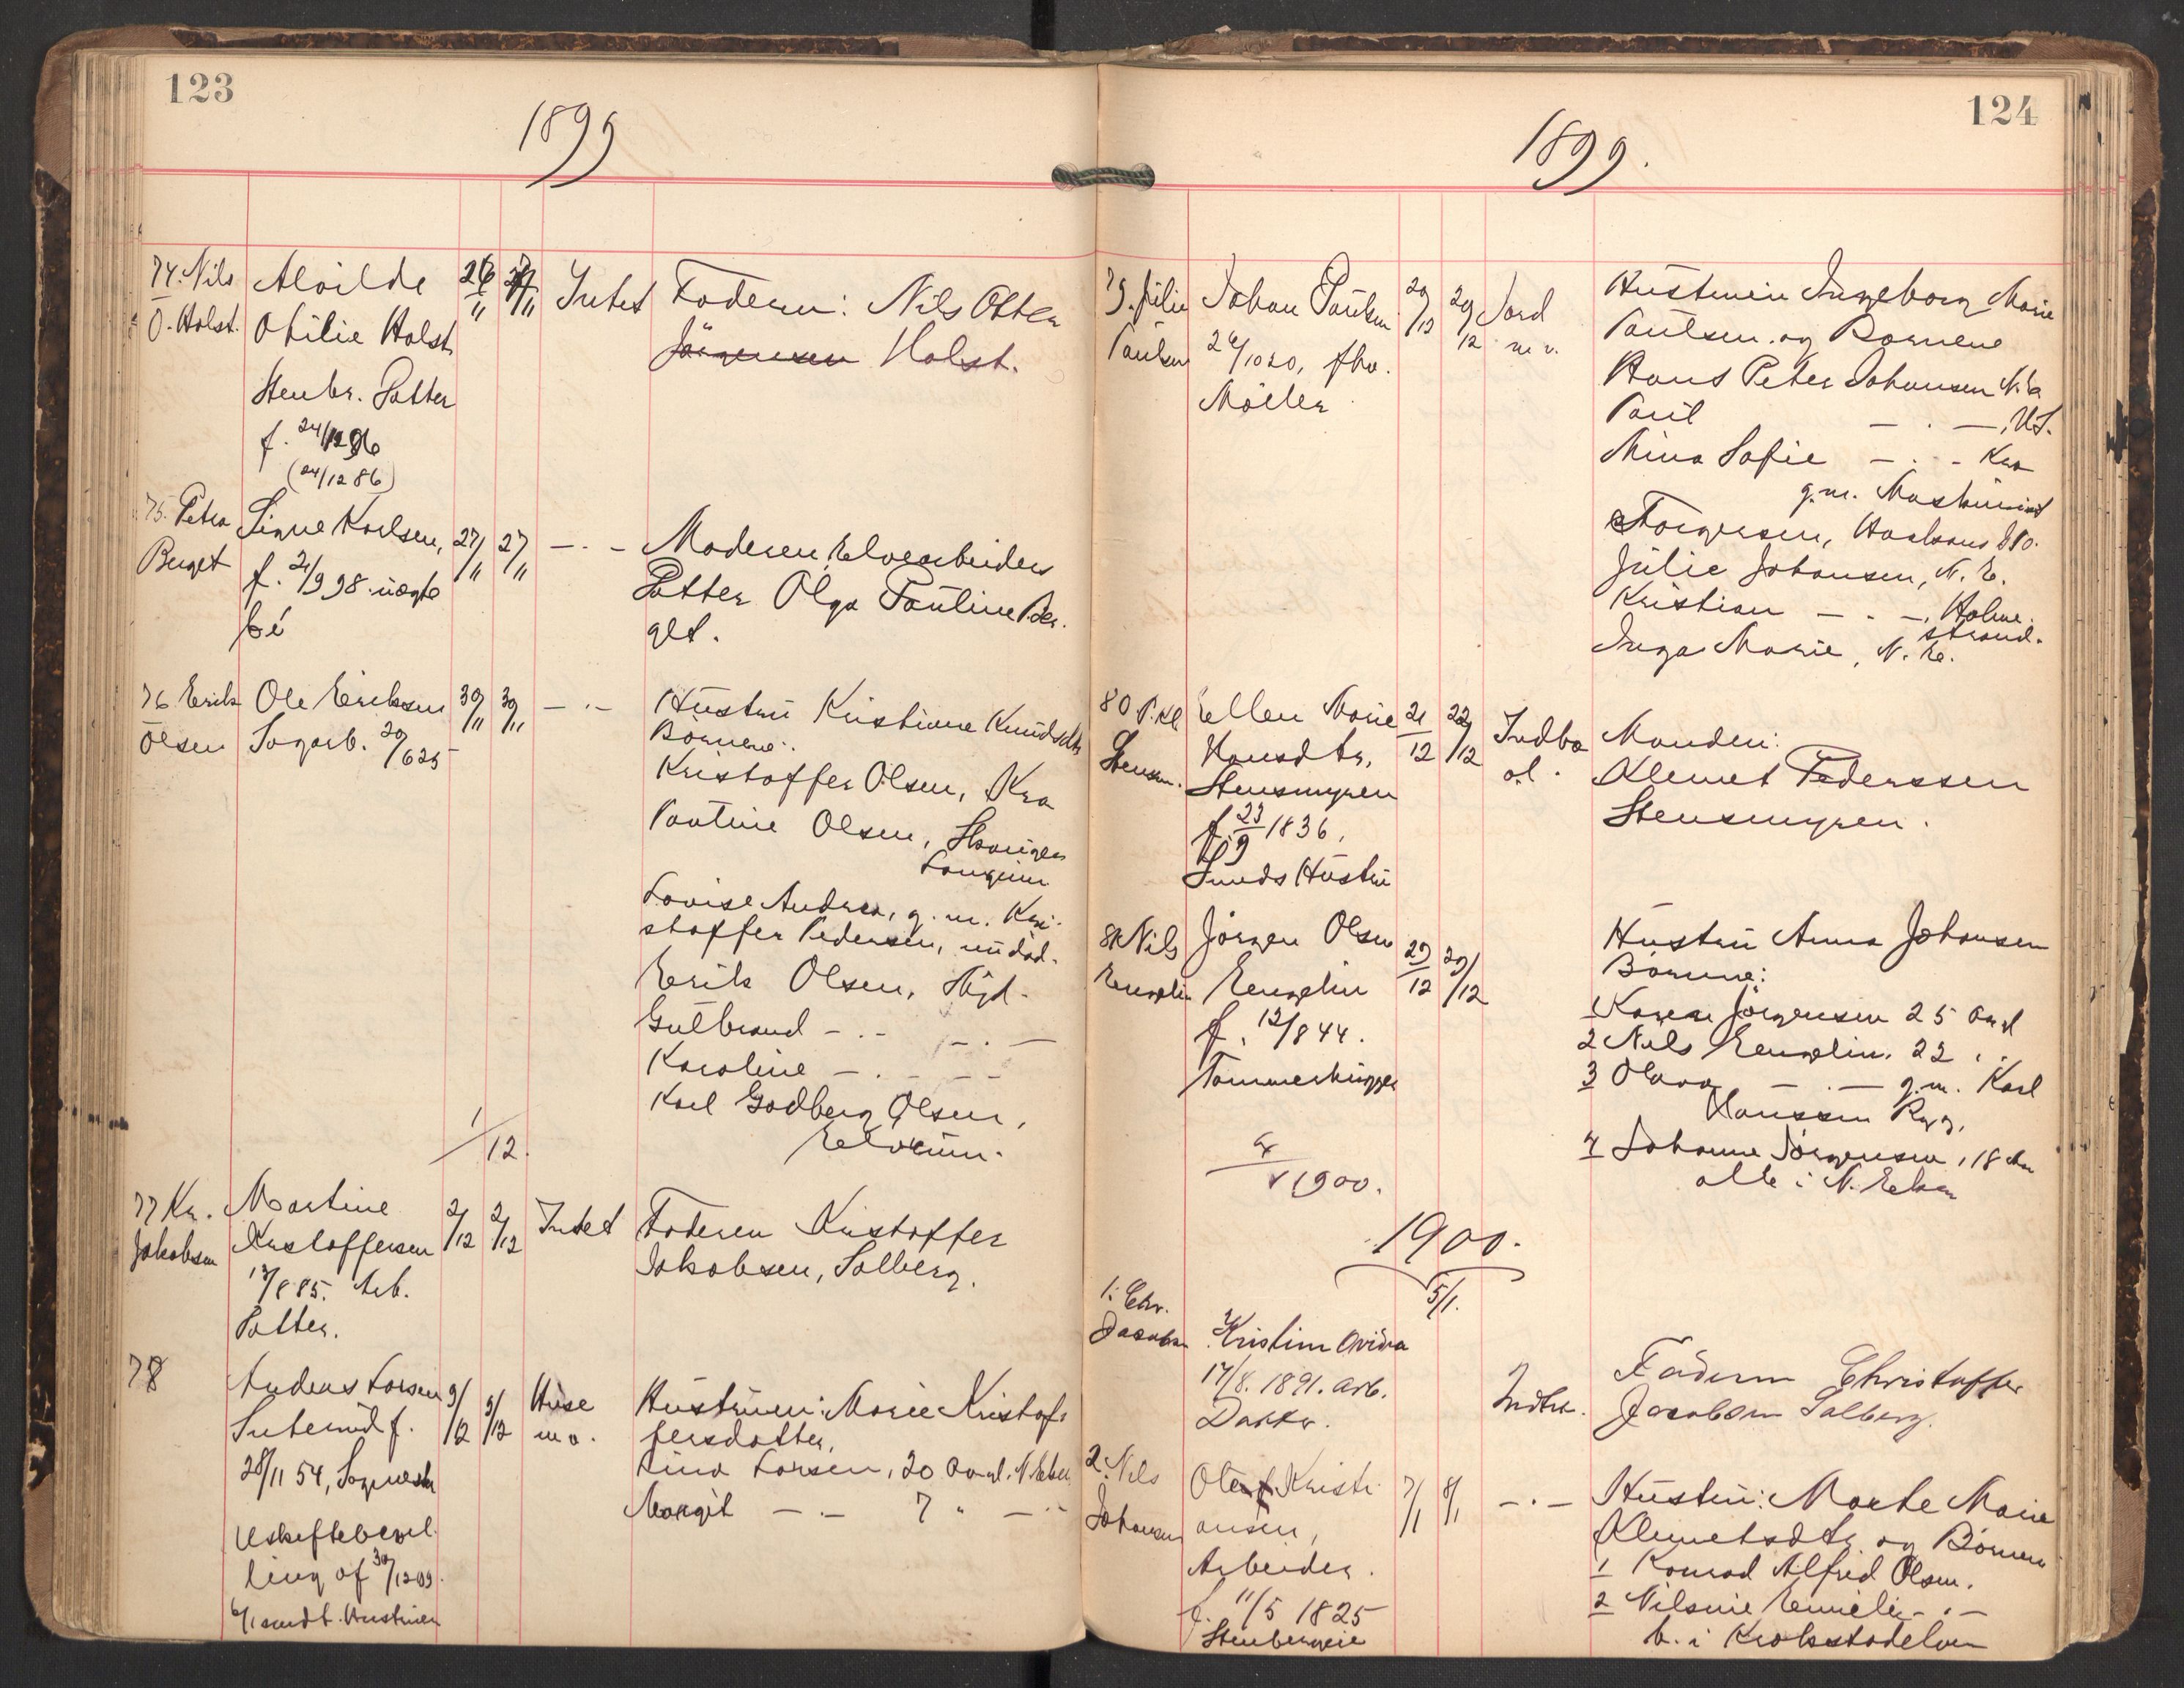 123
1899
74. Nils
O. Holst.
Alvilde
Otilie Holst
Stenbr. Datter
f. 24/12 96
(24/12 86)
26/11 27/11 Intet
Faderen: Nils Otter
Jörgensen Holst.
75. Petra
Berget
Signe Karlsen,
f. 21/9 98. uægte
27/11 27/11 — . —
Moderen, Elvearbeiders
Datter Olga Pauline Ber-
get.
76 Erik
Olsen
Ole Eriksen
Sagarb. 20/6 25
30/11 30/11 — . —
Hustru Kristiane Knudsdtr
Börnene:
Kristoffer Olsen, Kra
Pauline Olsen,
Lovise Andrea, g. m. Kri-
stoffer Pedersen, nu död.
Erik Olsen,
Gulbrand — . — — . —
Karoline — . — —
Karl Godberg Olsen,
Elverum.
1/12.
77 Kr.
Jakobsen
Martine
Kristoffersen
13/8 85. Arb.
Datter.
2/12 2/12 Intet
Faderen Kristoffer
Jakobsen, Solberg.
78
Andreas Larsen
f.
28/11 54, Sagmester
Uskiftebevil-
ling af 30/12 09.
6/1 sendt. Hustruen
9/12 9/12 Huse
m v.
Hustruen: Marie Kristof-
fersdatter,
Lina Larsen, 20 Aar gl. N. Eker
Margit — . — 7 " — . —
124
1899.
79. Julie
Paulsen
Johan Paulsen
26/10 20, fhv.
Möller
20/12 20/12 Jord
m v.
Hustruen Ingeborg Marie
Paulsen og Börnene
Hans Peter Johansen N. E.
Paul — . —, U.S.
Mina Sofie — . — Kra
g. m. Maskinist
Torgersen,
Julie Johansen, N. E.
Kristian — . —, Holme-
strand.
Inga Marie, N. E.
80 P. Kl.
Stensm.
Ellen Marie
Hansdtr,
Stensmyren
f. 23/9 1836,
Hustru
21/12 22/12 Indbo
ol.
Manden:
Klemet Pederssen
Stensmyren.
81 Nils
Engelin
Jörgen Olsen
Engelin
f. 12/8 44.
Tömmerhugger
29/12 29/12
Hustru Anna Johansen
Börnene:
1 Karen Jörgensen 25 Aar gl
2 Nils Engelin. 22 . .
3 Olava — . — g. m. Karl
Hanssen Ryg,
4 Johanne Jörgensen, 18 Aar
alle i N. Eker
1900.
1900.
5/1.
1. Chr.
Jacobsen
Kristine Ovidia
17/8. 1891. Arb.
Datter.
Indtet.
Faderen Christoffer
Jacobsen Solberg.
2. Nils
Johansen
Olaf Kristi-
ansen,
Arbeider.
f. 11/5 1825
Stenbergeie
7/1 8/1 — . —
Hustru: Marte Marie
Klemetsdtr og Börnene
1 Konrad Alfred Olsen.
2 Nilsine Emilie — . —
b. i Krokstadelven